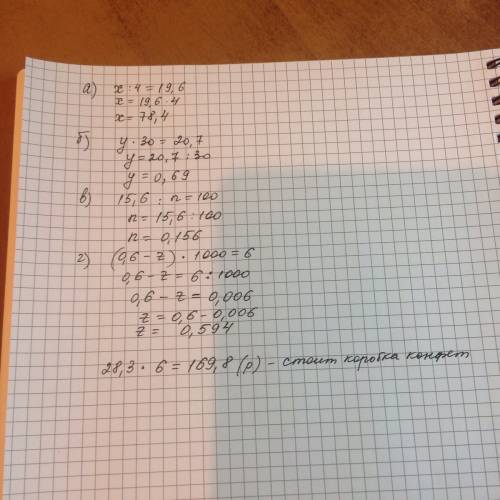 а) x : 4 = 19,6
x = 19,6 · 4
x = 78,4
б) y · 30 = 20,7
y = 20,7 : 30
y = 0,69
в) 15,6 : n = 100
n = 15,6 : 100
n = 0,156
г) (0,6 - z) · 1000 = 6
0,6 - z = 6 : 1000
0,6 - z = 0,006
z = 0,6 - 0,006
z = 0,594
28,3 · 6 = 169,8 (р) - стоит коробка конфет